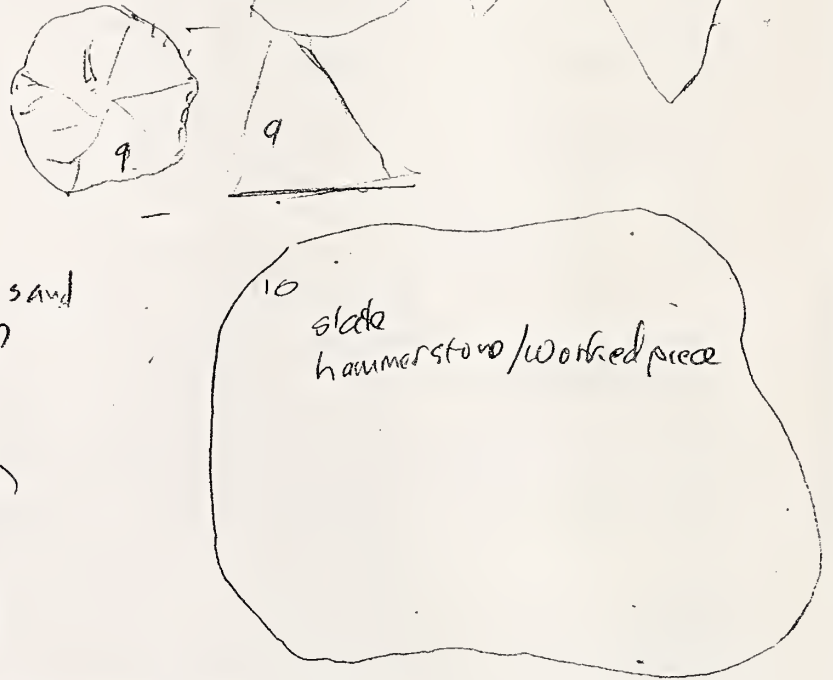 9
9
sand
10
slate
hammerstone/worked piece